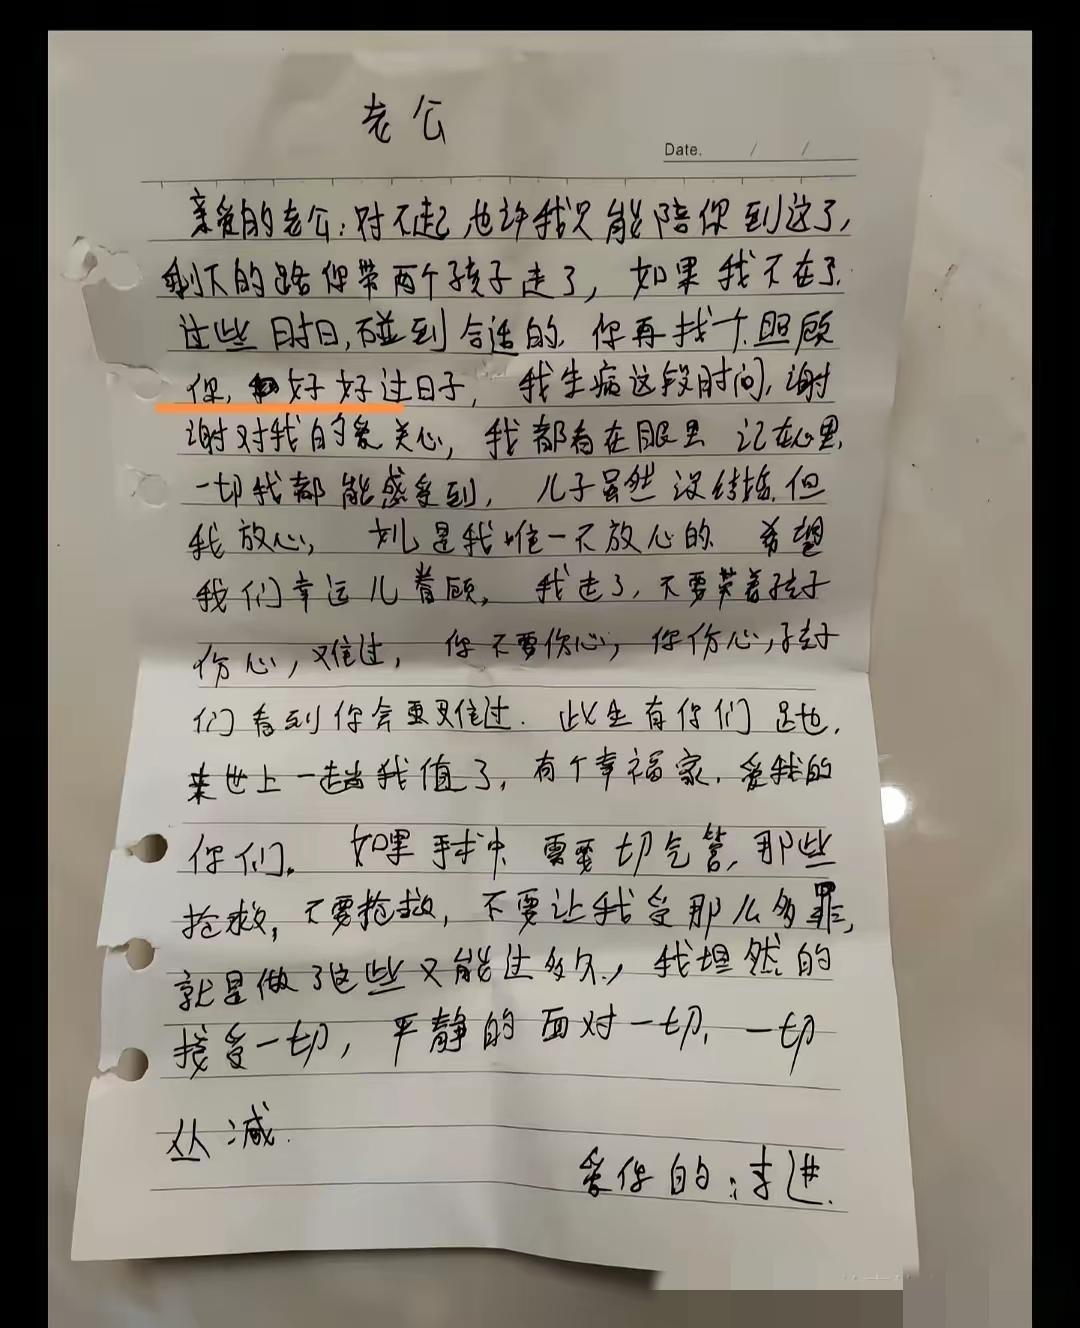 老公
Date. / /
亲爱的老公:对不起,也许我只能陪你到这了,
剩下的路你带两个孩子走了,如果我不在了.
过些时日,碰到合适的.你再找个.照顾
你,好好过日子,我生病这段时间,谢
谢对我的爱关心,我都看在眼里 记在心里.
一切我都能感受到,儿子虽然没结婚.但
我放心,是我唯一不放心的.希望
我们幸运儿眷顾.我走了,不要带着孩子
伤心,难过,你不要伤心,你伤心,孩子
们看到你会更难过.此生有你们足也.
来世上一趟我值了,有个幸福家.爱我的
你们.如果手术中 需要切气管,那些
抢救,不要抢救,不要让我受那么多罪,
就是做了这些又能过多久,我坦然的
接受一切,平静的面对一切.一切
从减.
爱你的:李进.